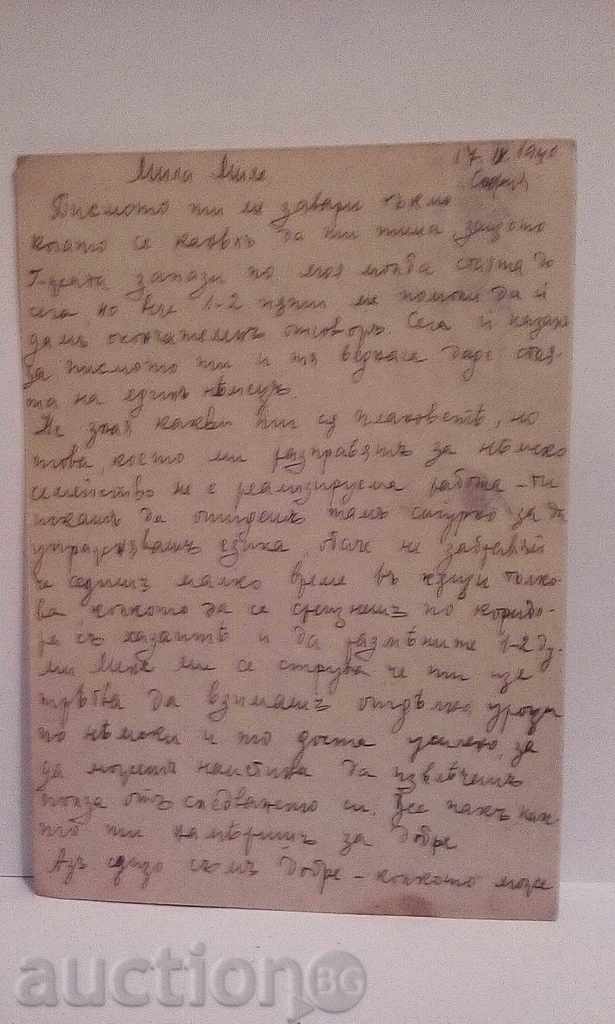 17. IX 1940
София
Мила Миле
Писмото ти ме завари тъкмо
когато се канвхъ да ти пиша, защото
Г-жата запази по моя молба стаята до
сега, но вече 1-2 пѫти ме помоли да ѝ
дамъ окончателенъ отговоръ. Сега ѝ казахъ
за писмото ти и тя веднага даде стая-
та на единъ нѣмецъ.
Не зная какви ти сѫ плановетѣ, но
това, което ми разправятъ за нѣмско
семейство не е реализируема работа - ти
искашъ да отидешъ тамъ сигурно за да
упражнявашъ езика, обаче не забравяй
че седишъ малко време въ кѫщи толко-
ва колкото да се срещнешъ по коридо-
ра съ хазаитѣ и да размѣните 1-2 ду-
ми. Миле ми се струва, че ти ще
трѣбва да взимашъ отдѣлно уроци
по нѣмски и то доста усилено, за
да можешъ наистина да извлѣчешъ
полза отъ следването си. Все пакъ как-
то ти намѣришъ за добре
Азъ сѫщо съмъ добре - колкото може
auction BG